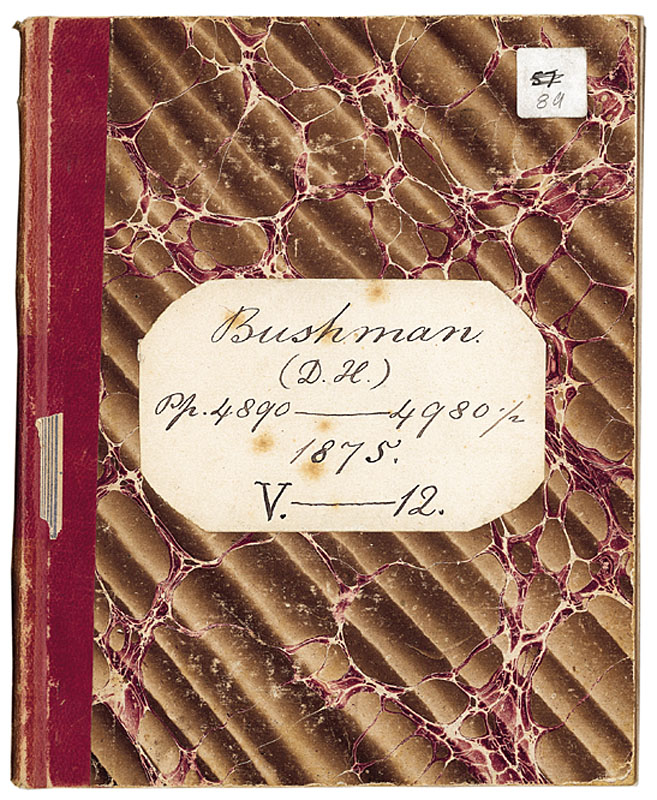 57
89
Bushman.
(D. H.)
Pp. 4890 — 4980 ½
1875.
V. — 12.